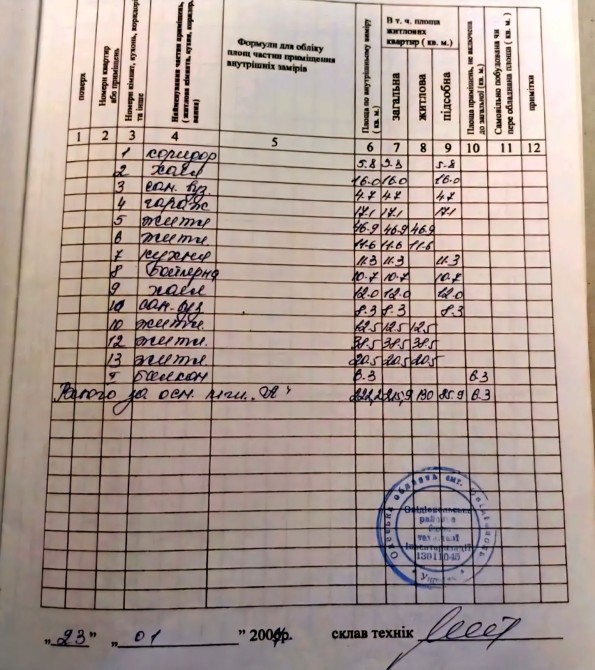 поверх
Номери квартир або приміщень
Номери кімнат, кухонь, коридорів та інше
Найменування частин приміщень, (житлова кімната, кухня, коридор,
Формули для обліку
площ частин приміщення
внутрішніх замірів
Площа по внутрішньому заміру (кв. м.)
В т. ч. площа
житлових
квартир ( кв. м.)
загальна
житлова
підсобна
Площа приміщень, не включена до загальної (кв. м.)
Самовільно побудована чи пере обладнана площа ( кв. м.)
примітки
1 2 3 4 5 6 7 8 9 10 11 12
1 коридор 5.8 5.8 5.8
2 холл 16.0 16.0 16.0
3 сан. вуз. 4.7 4.7 4.7
4 гараж 17.1 17.1 17.1
5 житл. 46.9 46.9 46.9
6 житл. 11.6 11.6 11.6
7 кухня 11.3 11.3 11.3
8 10.7 10.7 10.7
9 холл 12.0 12.0 12.0
10 сан. вуз 8.3 8.3 8.3
10 житл. 12.5 12.5 12.5
12 житл. 38.5 38.5 38.5
13 житл. 20.5 20.5 20.5
балкон 6.3 6.3
за осн. 130 85.9 6.3
Одеська область смт. Овідіополь
Овідіопольське
районне
бюро
технічної
інвентаризації
„23" „ 01 " 200 р. склав технік